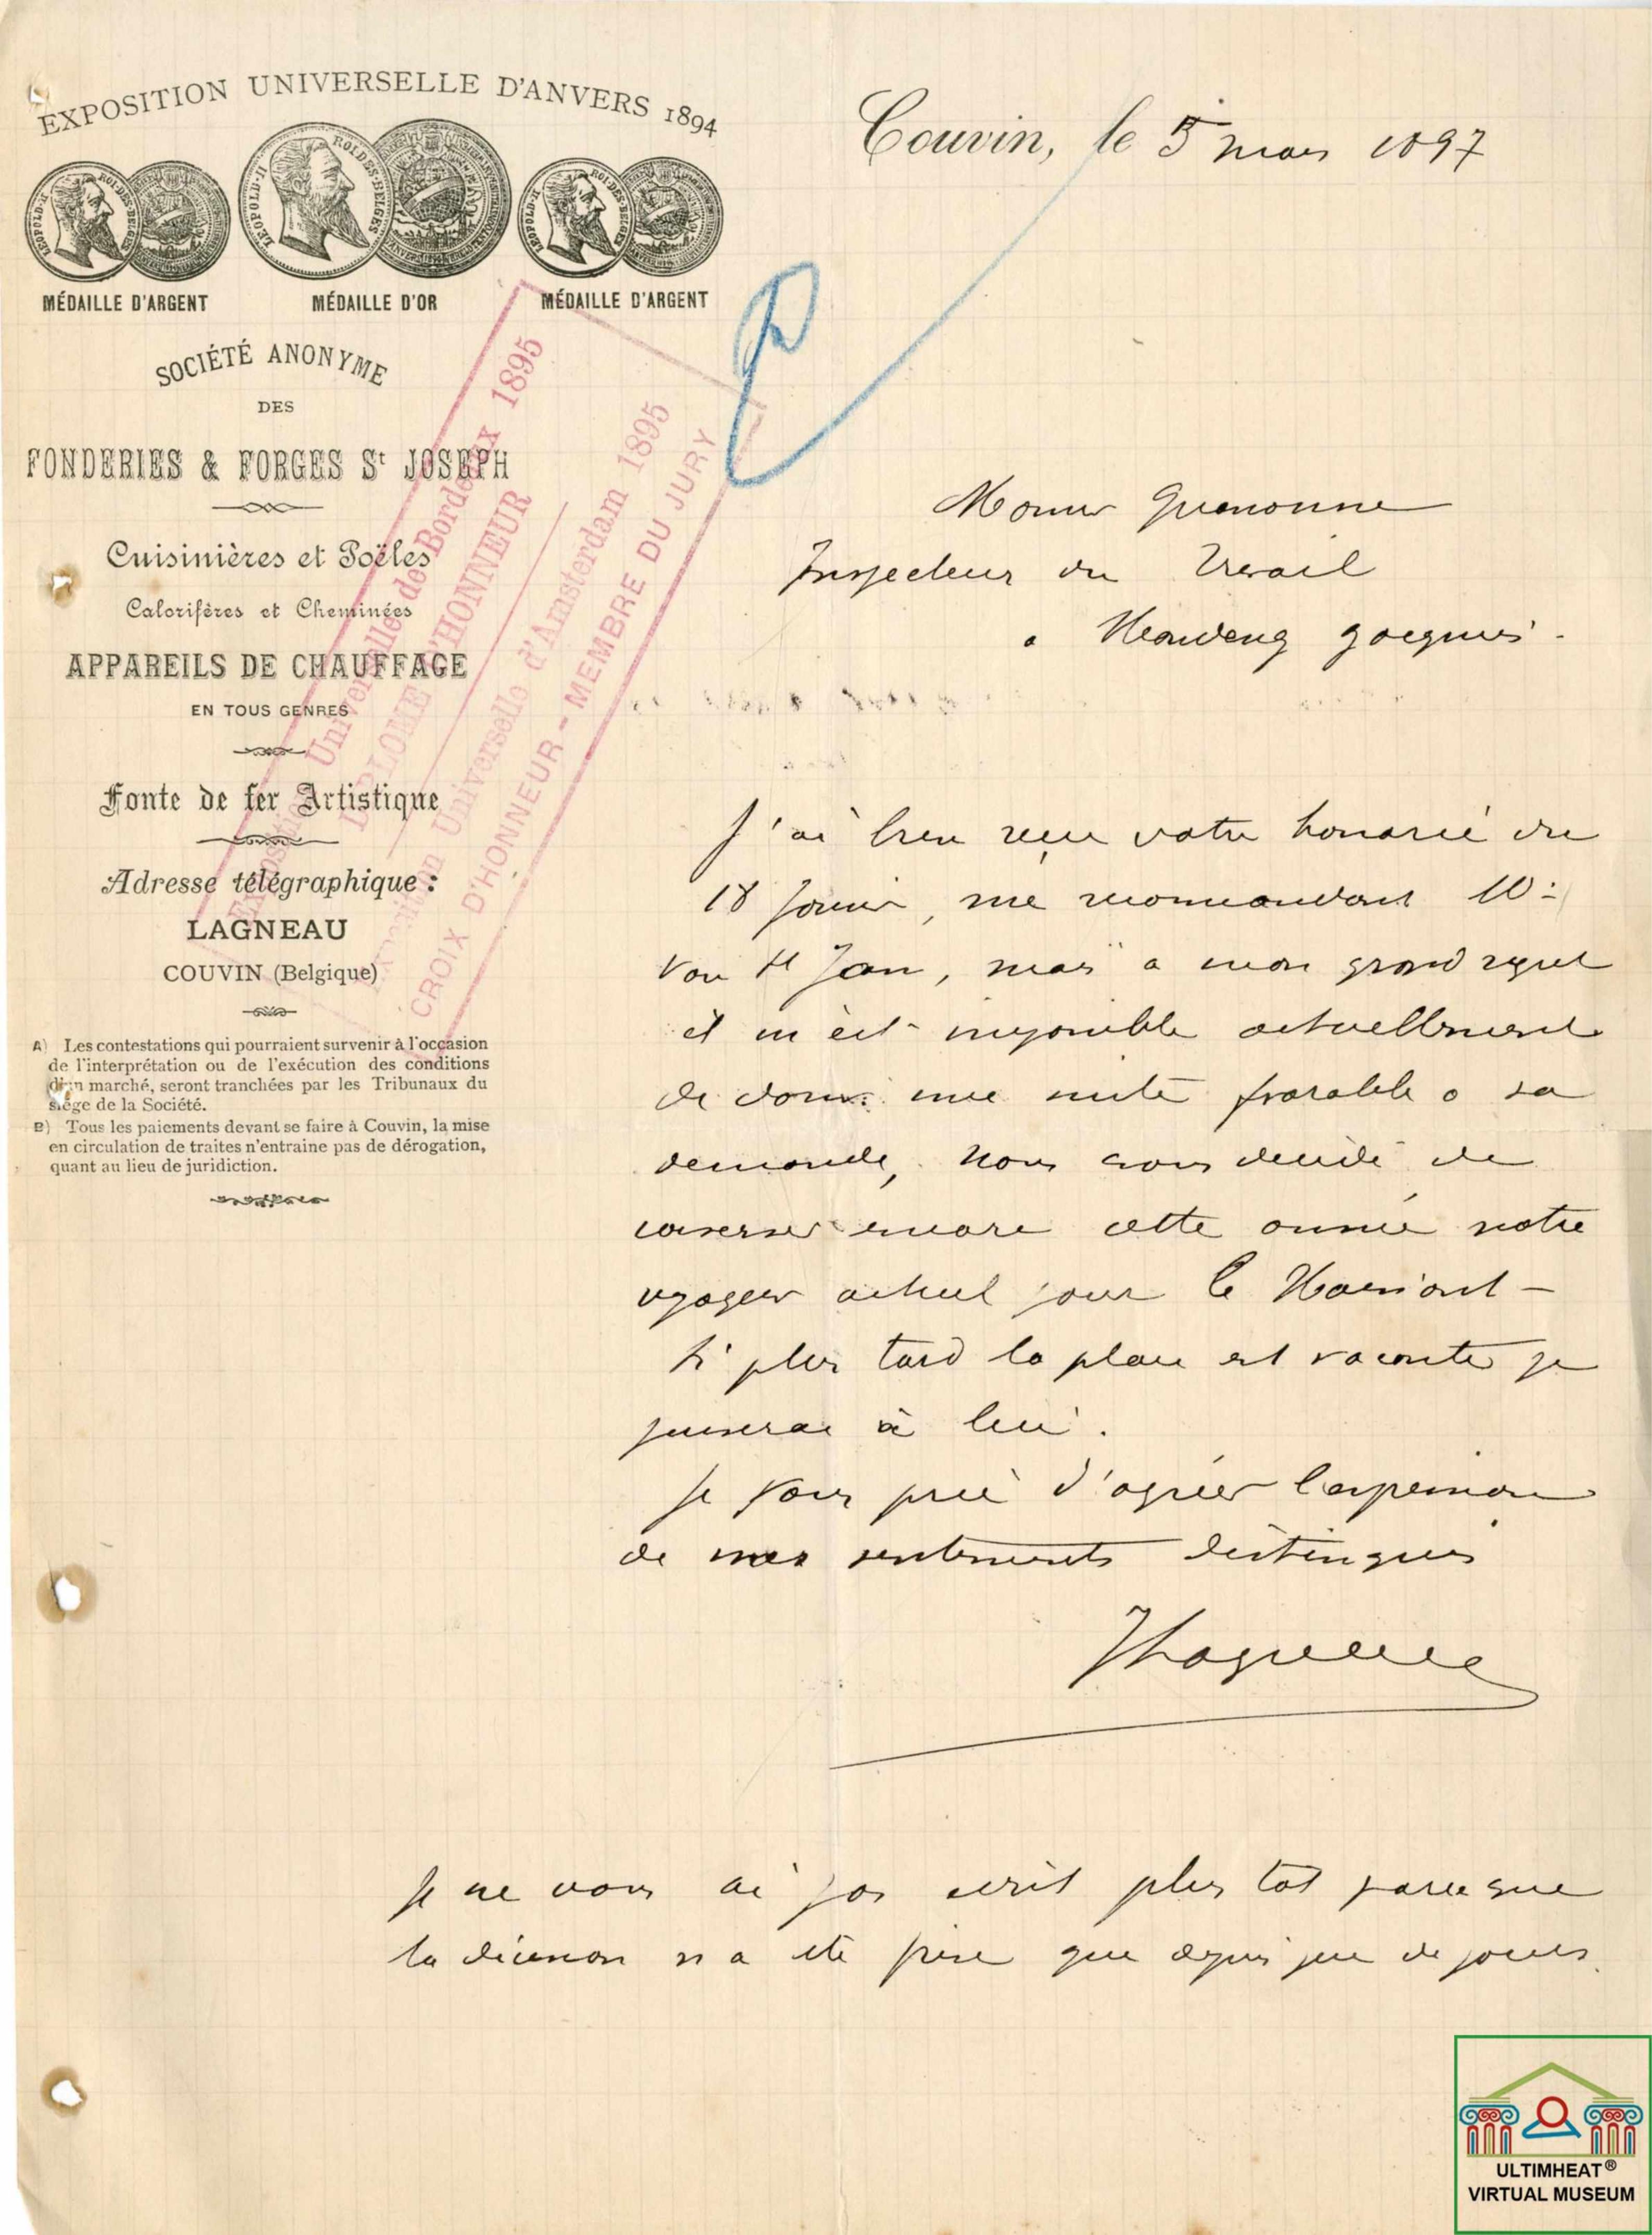 EXPOSITION UNIVERSELLE D'ANVERS 1894
LEOPOLD·II ROI·DES·BELGES
LEOPOLD·II ROI·DES·BELGES
LEOPOLD·II ROI·DES·BELGES
MÉDAILLE D'ARGENT MÉDAILLE D'OR MÉDAILLE D'ARGENT
SOCIÉTÉ ANONYME
DES
FONDERIES & FORGES St JOSEPH
Cuisinières et Poëles
Calorifères et Cheminées
APPAREILS DE CHAUFFAGE
EN TOUS GENRES
Fonte de fer Artistique
Adresse télégraphique :
LAGNEAU
COUVIN (Belgique)
A) Les contestations qui pourraient survenir à l'occasion
de l'interprétation ou de l'exécution des conditions
d'un marché, seront tranchées par les Tribunaux du
siége de la Société.
B) Tous les paiements devant se faire à Couvin, la mise
en circulation de traites n'entraine pas de dérogation,
quant au lieu de juridiction.
Exposition Universelle de Bordeaux 1895
DIPLOME D'HONNEUR
Exposition Universelle d'Amsterdam 1895
CROIX D'HONNEUR - MEMBRE DU JURY
Couvin, le 5 mars 1897
Inspecteur du Travail
a Houdeng Goegnies.
J'ai bien reçu votre honorée du
18 , me recommandant
Van , mais a mon grand regret
il m'est impossible actuellement
de donner une suite favorable a sa
demande, nous avons décidé de
conserver encore cette année notre
voyageur actuel pour le Hainaut -
Si plus tard la place est vacante je
penserai à lui.
Je vous prie d'agréer l'expression
de mes sentiments distingués
Je ne vous ai pas écrit plus tot parce que
la décision n'a été prise que depuis peu de jours.
ULTIMHEAT®
VIRTUAL MUSEUM